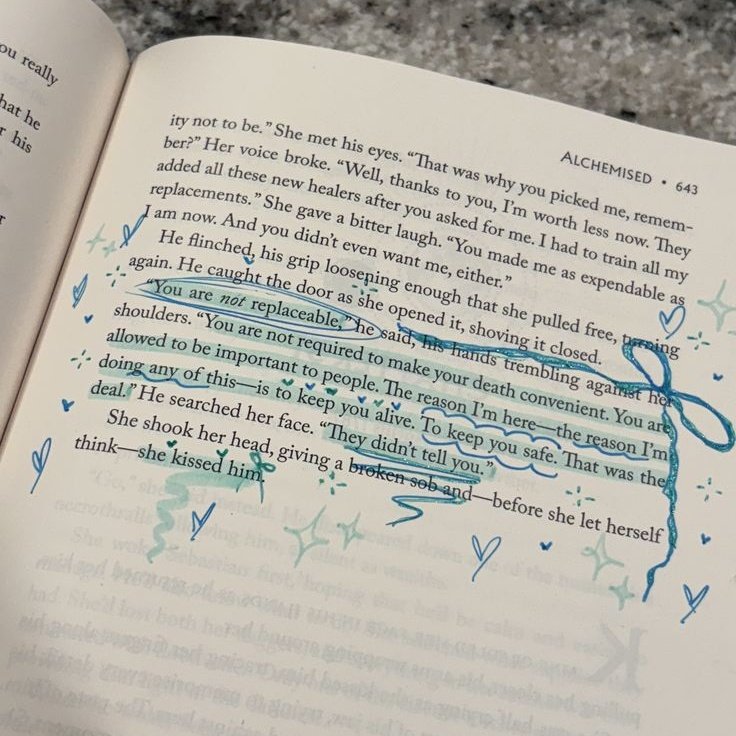 ou really
hat he
r his
r
ALCHEMISED • 643
ity not to be.” She met his eyes. “That was why you picked me, remem-
ber?” Her voice broke. “Well, thanks to you, I’m worth less now. They
added all these new healers after you asked for me. I had to train all my
replacements.” She gave a bitter laugh. “You made me as expendable as
I am now. And you didn’t even want me, either.”
He flinched, his grip loosening enough that she pulled free, turning
again. He caught the door as she opened it, shoving it closed.
“You are not replaceable,” he said, his hands trembling against her
shoulders. “You are not required to make your death convenient. You are
allowed to be important to people. The reason I’m here—the reason I’m
doing any of this—is to keep you alive. To keep you safe. That was the
deal.” He searched her face. “They didn’t tell you.”
She shook her head, giving a broken sob and—before she let herself
think—she kissed him.